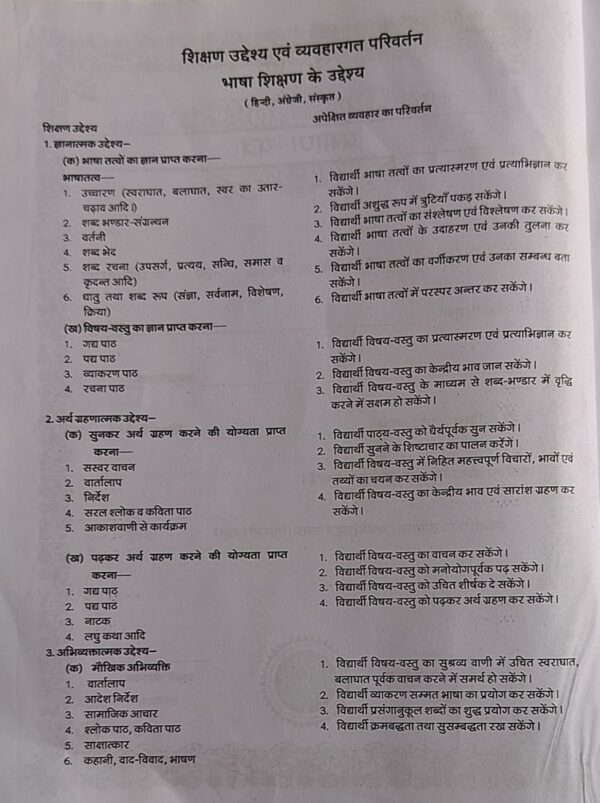 शिक्षण उद्देश्य एवं व्यवहारगत परिवर्तन
भाषा शिक्षण के उद्देश्य
( हिन्दी, अंग्रेजी, संस्कृत )
शिक्षण उद्देश्य
अपेक्षित व्यवहार का परिवर्तन
1. ज्ञानात्मक उद्देश्य–
(क) भाषा तत्वों का ज्ञान प्राप्त करना—
भाषातत्व—
1. उच्चारण (स्वराघात, बलाघात, स्वर का उतार-
चढ़ाव आदि।)
2. शब्द भण्डार-संग्रन्थन
3. वर्तनी
4. शब्द भेद
5. शब्द रचना (उपसर्ग, प्रत्यय, सन्धि, समास व
कृदन्त आदि)
6. धातु तथा शब्द रूप (संज्ञा, सर्वनाम, विशेषण,
क्रिया)
1. विद्यार्थी भाषा तत्वों का प्रत्यास्मरण एवं प्रत्याभिज्ञान कर
सकेंगे।
2. विद्यार्थी अशुद्ध रूप में त्रुटियाँ पकड़ सकेंगे।
3. विद्यार्थी भाषा तत्वों का संश्लेषण एवं विश्लेषण कर सकेंगे।
4. विद्यार्थी भाषा तत्वों के उदाहरण एवं उनकी तुलना कर
सकेंगे।
5. विद्यार्थी भाषा तत्वों का वर्गीकरण एवं उनका सम्बन्ध बता
सकेंगे।
6. विद्यार्थी भाषा तत्वों में परस्पर अन्तर कर सकेंगे।
(ख) विषय-वस्तु का ज्ञान प्राप्त करना—
1. गद्य पाठ
2. पद्य पाठ
3. व्याकरण पाठ
4. रचना पाठ
1. विद्यार्थी विषय-वस्तु का प्रत्यास्मरण एवं प्रत्याभिज्ञान कर
सकेंगे।
2. विद्यार्थी विषय-वस्तु का केन्द्रीय भाव जान सकेंगे।
3. विद्यार्थी विषय-वस्तु के माध्यम से शब्द-भण्डार में वृद्धि
करने में सक्षम हो सकेंगे।
2. अर्थ ग्रहणात्मक उद्देश्य–
(क) सुनकर अर्थ ग्रहण करने की योग्यता प्राप्त
करना—
1. सस्वर वाचन
2. वार्तालाप
3. निर्देश
4. सरल श्लोक व कविता पाठ
5. आकाशवाणी से कार्यक्रम
1. विद्यार्थी पाठ्य-वस्तु को धैर्यपूर्वक सुन सकेंगे।
2. विद्यार्थी सुनने के शिष्टाचार का पालन करेंगे।
3. विद्यार्थी विषय-वस्तु में निहित महत्त्वपूर्ण विचारों, भावों एवं
तथ्यों का चयन कर सकेंगे।
4. विद्यार्थी विषय-वस्तु का केन्द्रीय भाव एवं सारांश ग्रहण कर
सकेंगे।
(ख) पढ़कर अर्थ ग्रहण करने की योग्यता प्राप्त
करना—
1. गद्य पाठ
2. पद्य पाठ
3. नाटक
4. लघु कथा आदि
1. विद्यार्थी विषय-वस्तु का वाचन कर सकेंगे।
2. विद्यार्थी विषय-वस्तु को मनोयोगपूर्वक पढ़ सकेंगे।
3. विद्यार्थी विषय-वस्तु को उचित शीर्षक दे सकेंगे।
4. विद्यार्थी विषय-वस्तु को पढ़कर अर्थ ग्रहण कर सकेंगे।
3. अभिव्यक्तात्मक उद्देश्य–
(क) मौखिक अभिव्यक्ति
1. वार्तालाप
2. आदेश निर्देश
3. सामाजिक आचार
4. श्लोक पाठ, कविता पाठ
5. साक्षात्कार
6. कहानी, वाद-विवाद, भाषण
1. विद्यार्थी विषय-वस्तु का सुश्रव्य वाणी में उचित स्वराघात,
बलाघात पूर्वक वाचन करने में समर्थ हो सकेंगे।
2. विद्यार्थी व्याकरण सम्मत भाषा का प्रयोग कर सकेंगे।
3. विद्यार्थी प्रसंगानुकूल शब्दों का शुद्ध प्रयोग कर सकेंगे।
4. विद्यार्थी क्रमबद्धता तथा सुसम्बद्धता रख सकेंगे।